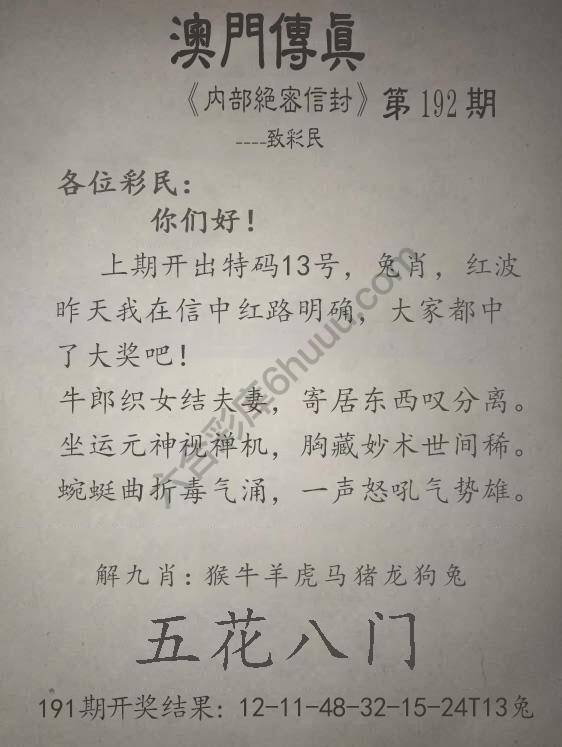 澳門傳眞
《内部絕密信封》第192期
----致彩民
各位彩民：
你们好！
上期开出特码13号，兔肖，红波
昨天我在信中红路明确，大家都中
了大奖吧！
牛郎织女结夫妻，寄居东西叹分离。
坐运元神视禅机，胸藏妙术世间稀。
蜿蜒曲折毒气涌，一声怒吼气势雄。
六合彩库6huuu.com
解九肖：猴牛羊虎马猪龙狗兔
五花八门
191期开奖结果：12-11-48-32-15-24T13兔